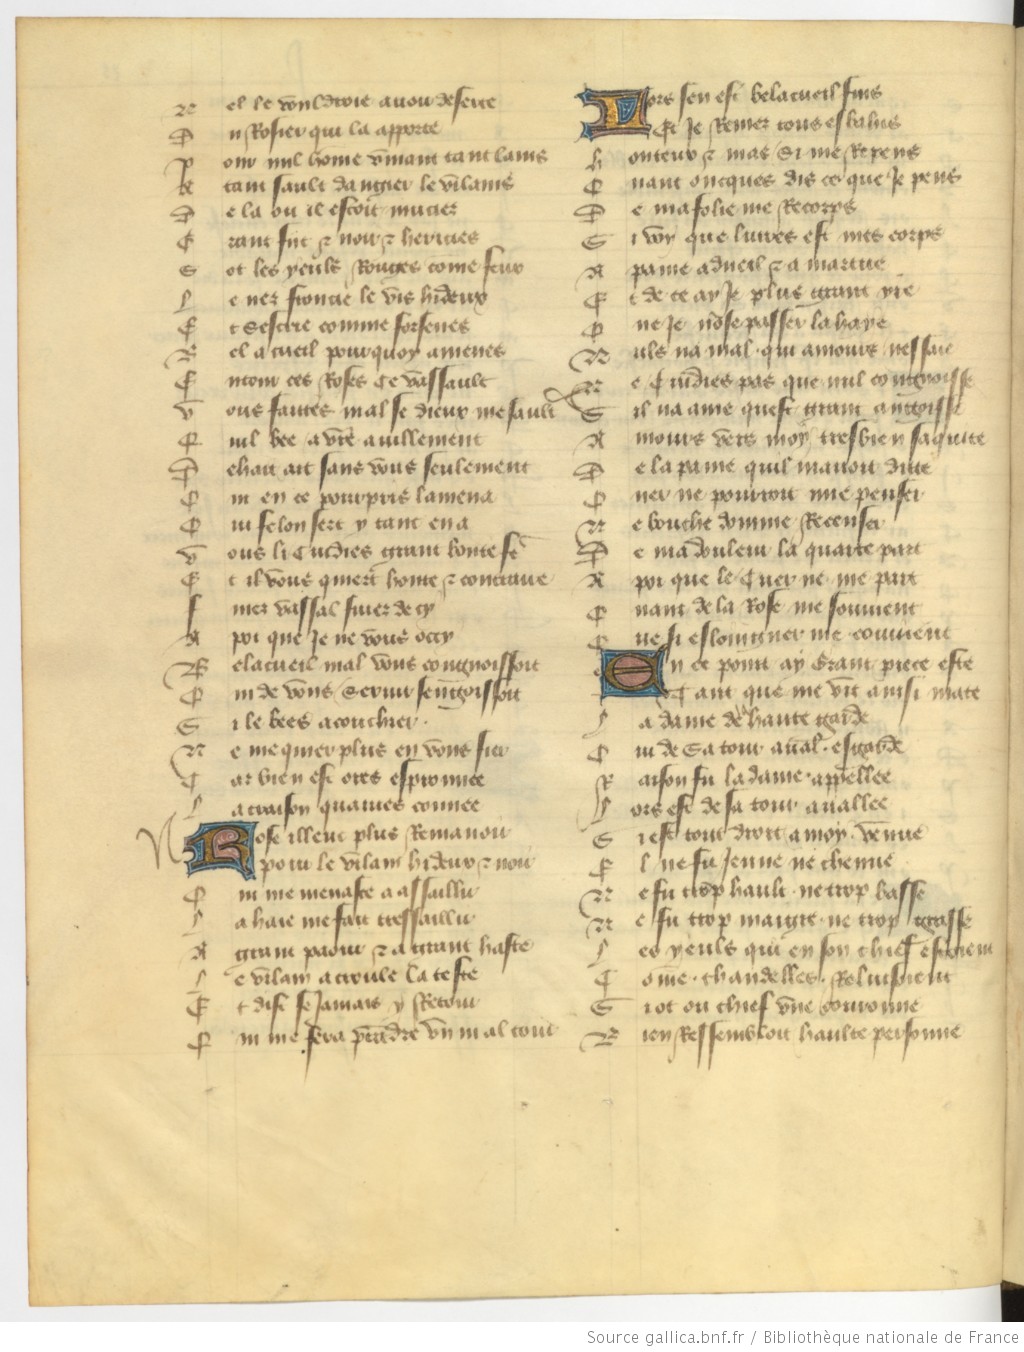 N el le vouldroie avoir deserte
D u Rosier qui la apporte
P our nul home vivant tant lains
A tant sault dangier le vilains
D e la ou il estoit mucier
G rant fut & noir & hericies
S ot les yeulx Rouges come feux
L e nez froncie le vis hideux
E t Sescrie comme forsenes
B el acueil pourquoy amenes
E ntour ces Roses Ce vassault
V ous faites mal se dieux me sault
Q uil bee a vre avillement
D ehait ait sans vous seulement
Q ui en ce pourpris lamena
Q ui felon sert y tant en a
V ous li Cuidies grant bonte fe
E t il vous quiert honte & contraire
f uier vassal fuier de cy
A poi que Je ne vous occy
B elacueil mal vous congnoissoit
Q ui de vous Servir sengoissoit
S i le bees a couchier
N e me quier plus en vous fier
C ar bien est ores esprouvee
L a traison quaves couvee
N Rose illeuc plus Remanoir
pour le vilain hideux & noir
Q ui me menasce a assaillir
L a haie me fait tressaillir
A grant paour & a grant haste
L e vilain a croule la teste
E t dist se Jamais y Retour
Q ui me fera prendre vn mal tour
Lors sen est belacueil fuis
Et Je Remez tous esbahis
h onteux & mas Si me Repens
Q uant oncques dis ce que Je pens
D e ma folie me Recorps
S i voy que livres est mes corps
A paine a dueil & a martire
E t de ce ay Je plus grant yre
Q ne Je nose passer la haye
N uls na mal qui amours nessaie
N e Cuidies pas que nul congnoisse
S il na ame quest grant angoisse
A mours vers moy tresbien saquite
D e la paine quil mavoit ditte
C uer ne pourroit mie penser
N e bouche domme Recenser
D e ma douleur la quarte part
A poi que le Cuer ne me part
Q uant de la Rose me souvient
Q ue si eslongner me couvient
En ce point ay Grant piece este
Tant que me vit ainsi mate
L a dame de haute garde
Q ui de Sa tour aual esgarde
R aison fu la dame appellee
L ors est de sa tour avallee
S i est tout droit a moy venue
E l ne fu Jenne ne chenue
N e fu trop hault ne trop basse
N e fu trop maigre ne trop grasse
L es yeulx qui en son chief estoient
C ome chandelles Reluisoient
S i ot ou chief vne couronne
B ien Ressembloit haulte personne
Source gallica.bnf.fr / Bibliothèque nationale de France